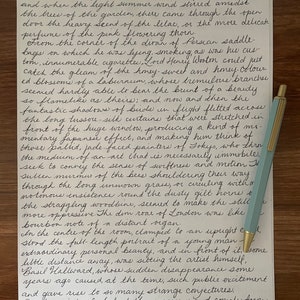 and when the light summer wind stirred amidst
the trees of the garden, there came through the open
door the heavy scent of the lilac, or the more delicate
perfume of the pink flowering thorn.
From the corner of the divan of Persian saddle
bags on which he was lying, smoking as was his cus
tom, innumerable cigarettes, Lord Henry Wotton could just
catch the gleam of the honey sweet and honey colour
ed blossoms of a laburnum, whose tremulous branches
seemed hardly able to bear the burden of a beauty
so flamelike as theirs; and now and then the
fantastic shadows of birds in flight flitted across
the long tussore silk curtains that were stretched in
front of the huge window, producing a kind of mo
mentary Japanese effect, and making him think of
those pallid, jade faced painters of Tokyo, who through
the medium of an art that is necessarily immobile,
seek to convey the sense of swiftness and motion. The
sullen murmur of the bees shouldering their way
through the long unmown grass, or circling with
monotonous insistence round the dusty gilt horns of
the straggling woodbine, seemed to make the stillness
more oppressive. The dim roar of London was like the
bourdon note of a distant organ.
In the centre of the room, clamped to an upright easel
stood the full length portrait of a young man of
extraordinary personal beauty, and in front of it, some
little distance away, was sitting the artist himself,
Basil Hallward, whose sudden disappearance some
years ago caused at the time, such public excitement
and gave rise to so many strange conjectures.